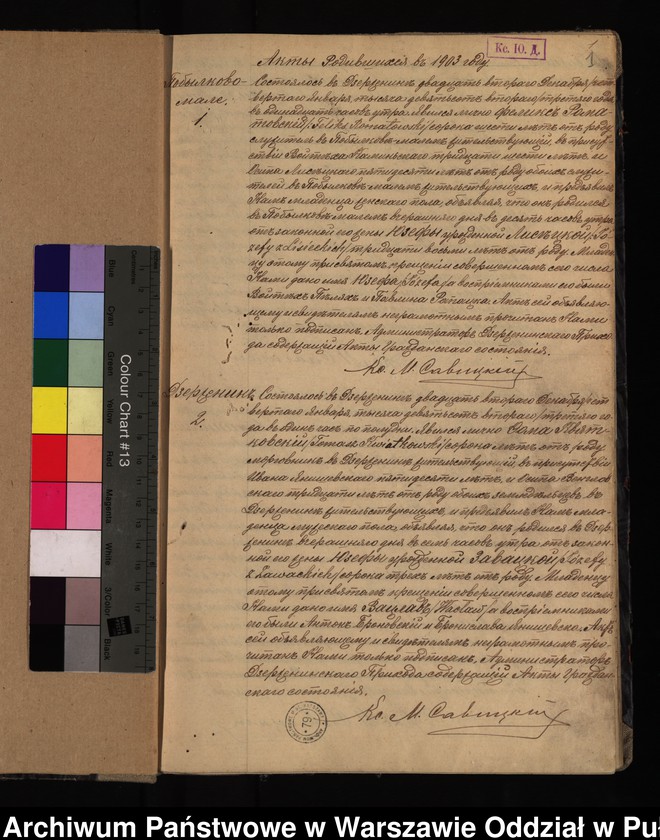 Кс. Ю. Д.
1
Акты Родившихся въ 1903 году.
Побылково-
малe.
1.
Состоялось въ Дзерженинѣ двадцать втораго Декабря/чет
вертаго Января тысяча девятьсотъ втораго/третяго года
въ одинадцать часовъ утра. Явился лично Феликсъ
/Feliks сорока шести лѣтъ отъ роду
служитель въ Побылковѣ-маломъ жительствующій, въ присут
ствіи Войтѣха Каминскаго тридцати шести лѣтъ и
пятидесяти лѣтъ отъ роду обоихъ служи
телей въ Побылковѣ маломъ жительствующихъ, и предъявилъ
Намъ младенца женскаго пола, объявляя, что онъ родился
въ Побылковѣ маломъ вчерашняго дня въ десять часовъ утра
отъ законной его жены Юзефы урожденной Лисѣцкой /Jó-
zefy z Lisieckich/ тридцати восьми лѣтъ отъ роду. Младен
цу этому при святомъ крещеніи совершенномъ сего числа
Нами дано имя Юзефа /Józefa/ а воспріемниками его были
Войтѣхъ и Павлина Рапацка. Актъ сей объявляю-
щему и свидѣтелямъ неграмотнымъ прочитанъ Нами
только подписанъ. Администраторъ Дзерженинскаго Прихо
да содержащій Акты Гражданскаго состоянія.
Кс. М. Савицкій
Дзерженинъ
2.
Состоялось въ Дзерженинѣ двадцать втораго Декабря/чет
вертаго Января тысяча девятьсотъ втораго/третяго го
да въ одинъ часъ по полудни. Явился лично
сорока лѣтъ отъ роду
въ Дзерженинѣ жительствующій, въ присутствіи
Ивана пятидесяти лѣтъ, и
скаго тридцати лѣтъ отъ роду обоихъ земледѣльцевъ въ
Дзерженинѣ жительствующихъ, и предъявилъ Намъ мла-
денца мужескаго пола, объявляя, что онъ родился въ Дзер
женинѣ вчерашняго дня въ семь часовъ утра отъ закон-
ной его жены Юзефы урожденной Завацкой /Józefy
z Zawackich/ сорока трехъ лѣтъ отъ роду. Младенцу
этому при святомъ крещеніи совершенномъ сего числа
Нами дано имя Вацлавъ /Wacław/ а воспріемниками
его были Антонъ и Бронислава Актъ
сей объявляющему и свидѣтелямъ неграмотнымъ про-
читанъ Нами только подписанъ. Администраторъ
Дзерженинскаго Прихода содержащій Акты Граждан-
скаго состоянія.
Кс. М. Савицкій
79
Colour Chart #13
Blue
Cyan
Green
Yellow
Red
Magenta
White
3/Color
Black
Centimetres
Archiwum Państwowe w Warszawie Oddział w Pu